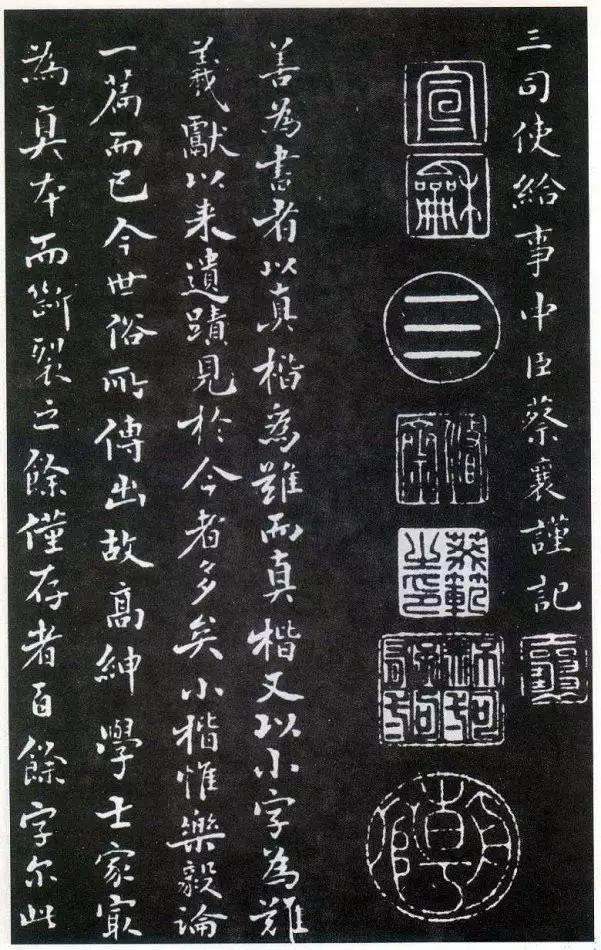 三司使給事中臣蔡襄謹記
宣龢
善為書者以真楷為難而真楷又以小字為難
羲獻以来遺蹟見於今者多矣小楷惟樂毅論
一篇而已今世俗所傳出故高紳學士家冣
為真本而斷裂之餘僅存者百餘字尔此